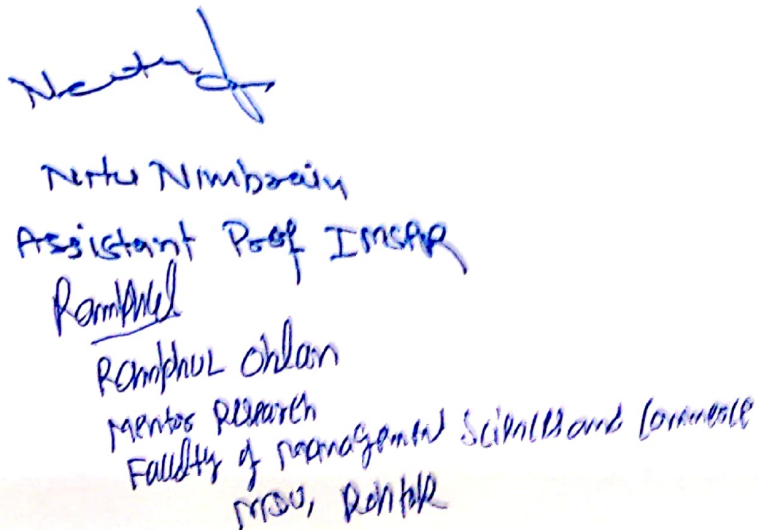 Neetu
Neetu Nimbrain
Assistant Prof IMSAR
Ramphul
Ramphul Ohlan
Mentor Research
Faculty of Management Sciences and Commerce
MDU, Rohtak